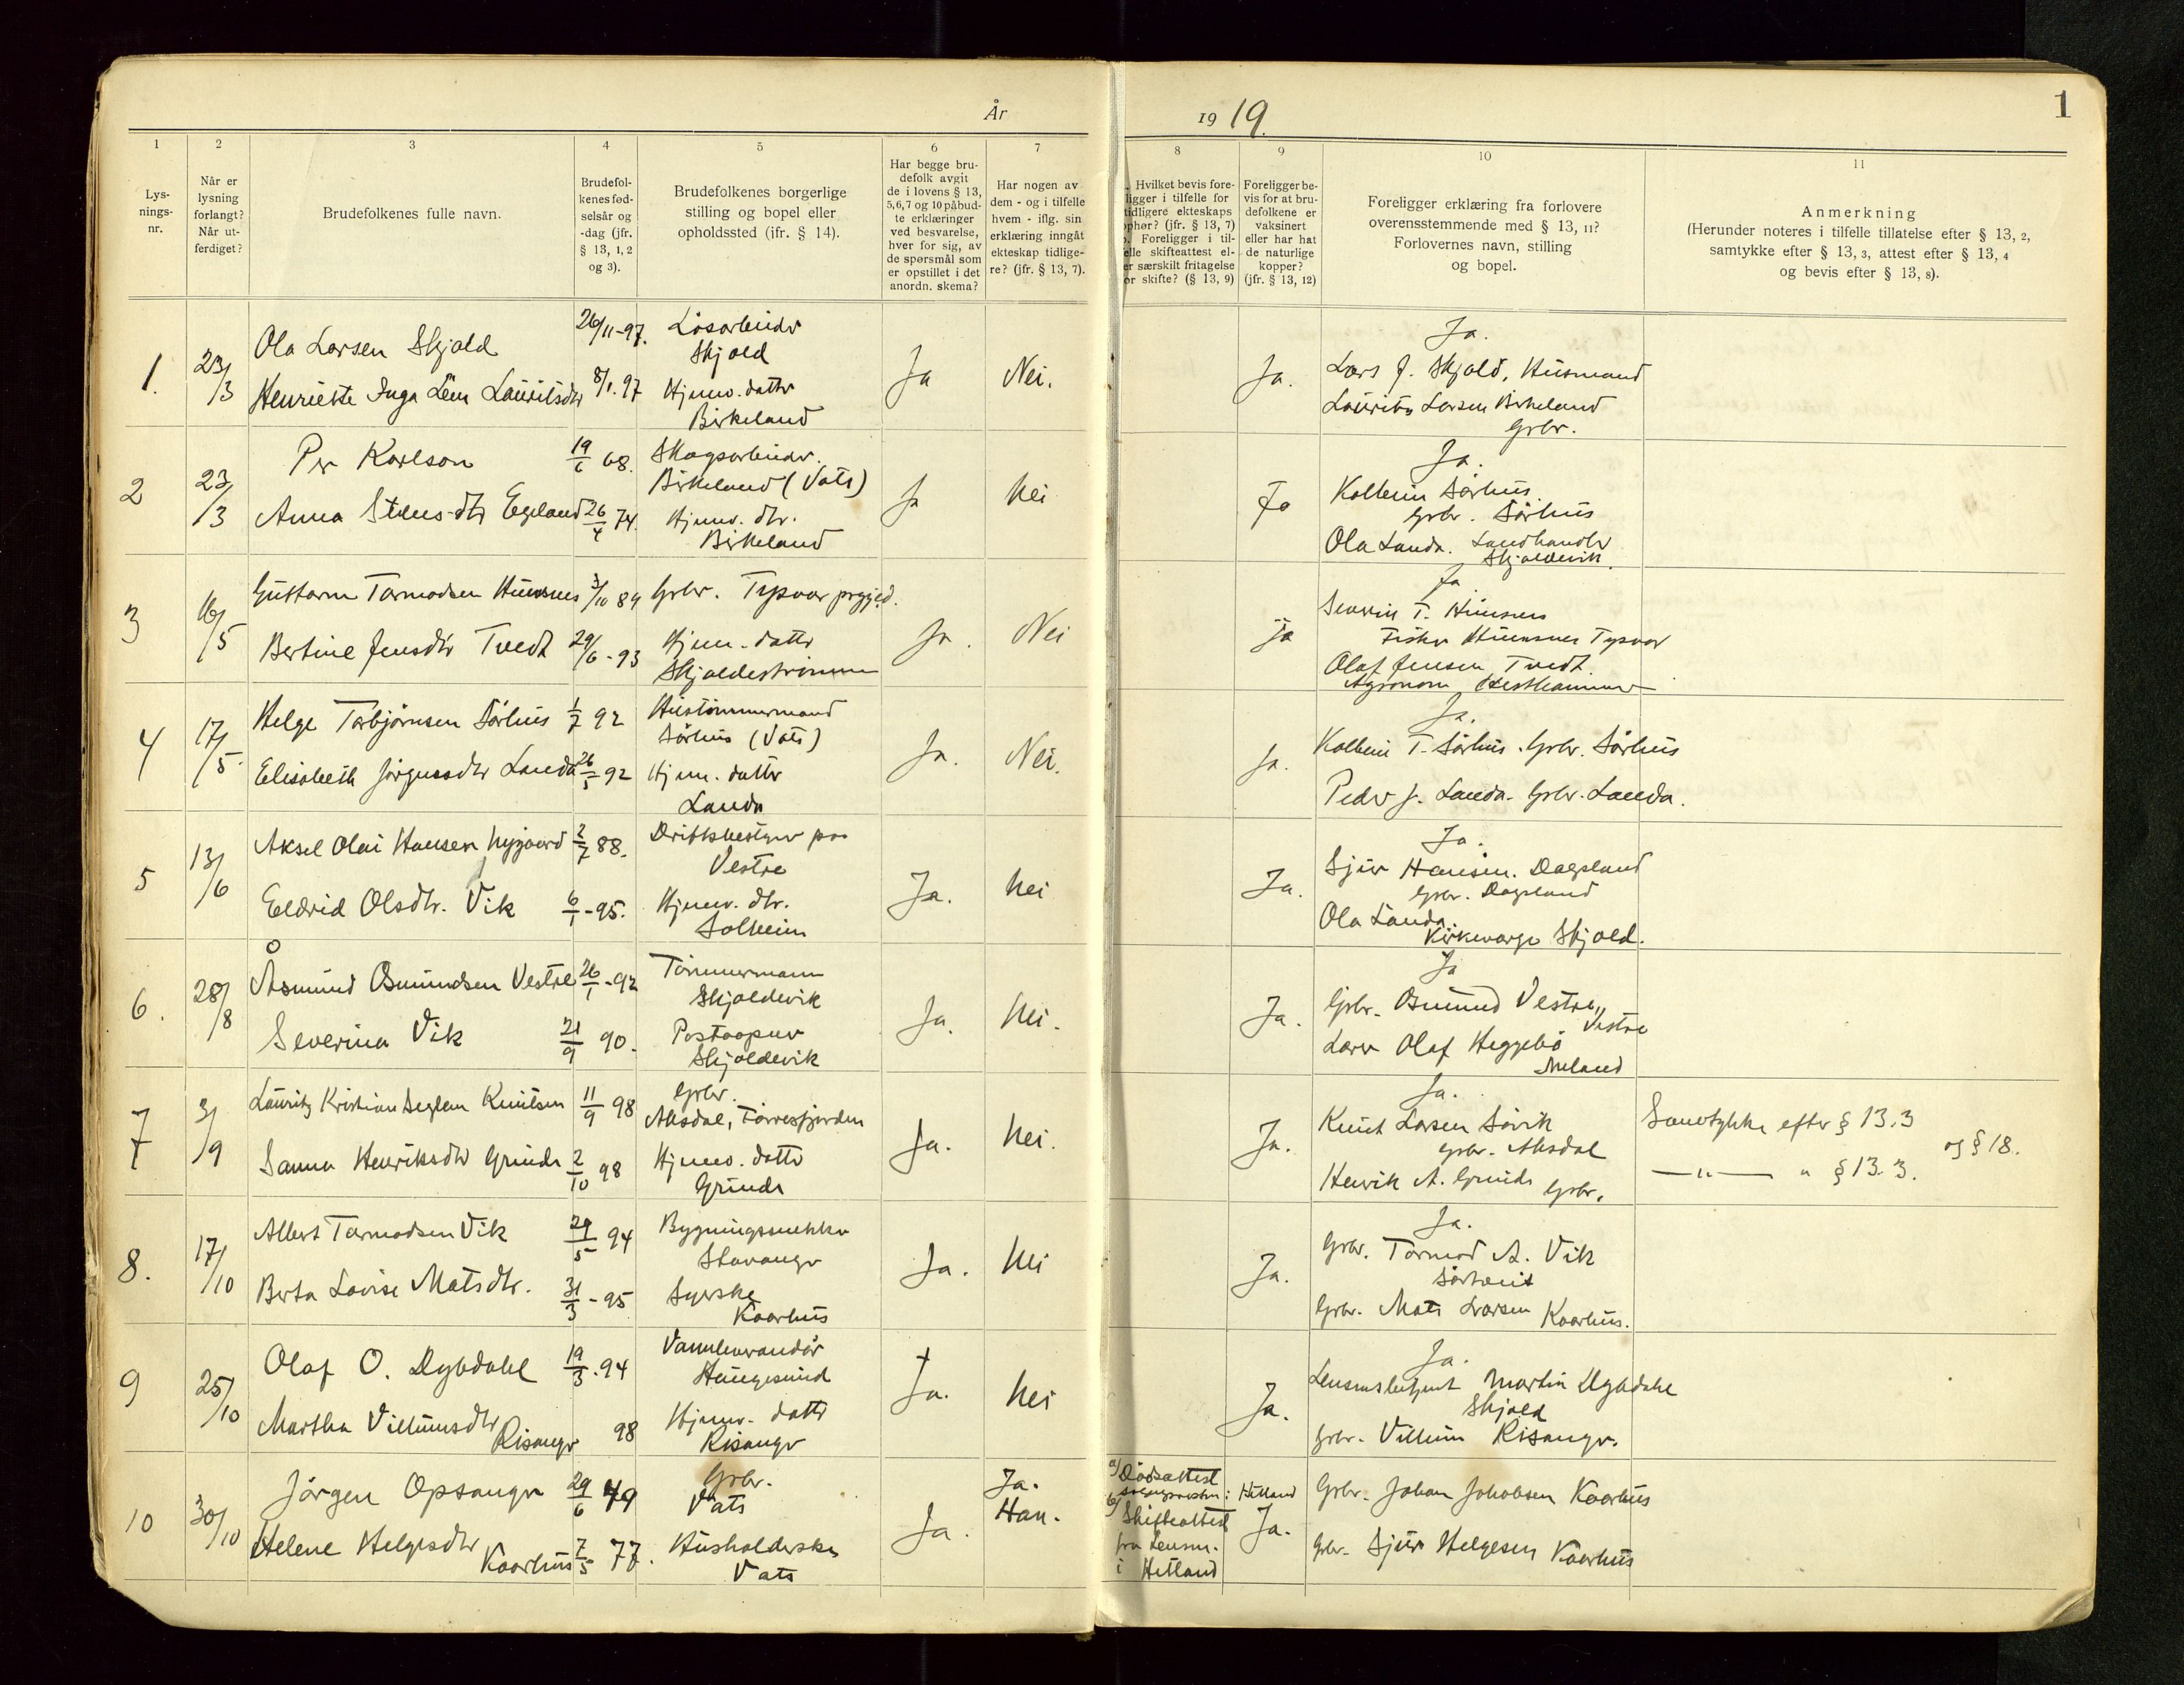 År 1919.
1
1
Lys-
nings-
nr.
2
Når er
lysning
forlangt?
Når ut-
ferdiget?
3
Brudefolkenes fulle navn.
4
Brudefol-
kenes fød-
selsår og
-dag (jfr.
§ 13, 1, 2
og 3).
5
Brudefolkenes borgerlige
stilling og bopel eller
opholdssted (jfr. § 14).
6
Har begge bru-
defolk avgit
de i lovens § 13,
5,6,7 og 10 påbud-
te erklæringer
ved besvarelse,
hver for sig, av
de spørsmål som
er opstillet i det
anordn. skema?
7
Har nogen av
dem - og i tilfelle
hvem - iflg. sin
erklæring inngåt
ekteskap tidlige-
re? (jfr. § 13, 7).
8
Hvilket bevis fore-
ligger i tilfelle for
tidligere ekteskaps
ophør? (jfr. § 13, 7)
Foreligger i til-
felle skifteattest el-
er særskilt fritagelse
or skifte? (§ 13, 9)
9
Foreligger be-
vis for at bru-
defolkene er
vaksinert
eller har hat
de naturlige
kopper?
(jfr. § 13, 12)
10
Foreligger erklæring fra forlovere
overensstemmende med § 13, 11?
Forlovernes navn, stilling
og bopel.
11
Anmerkning
(Herunder noteres i tilfelle tillatelse efter § 13, 2,
samtykke efter § 13, 3, attest efter § 13, 4
og bevis efter § 13, 8).
1. 23/3
Ola Larsen Skjold 26/11-97. Løsarbeider
Skjold
Henriette Inga Lauritsdtr 8/1.97 Hjemv. datter
Birkeland
Ja Nei. Ja.
Ja.
Lars J. Skjold, Husmand
Laurits Larsen Birkeland
Grbr.
2 23/3
Per Karlson 19/6 68. Skogsarbeider.
Birkeland (Vats)
Anna dtr Egeland 26/4 74. Hjemv. dtr.
Birkeland
Ja Nei Ja
Ja.
Kolbein Sørhus
Grbr. Sørhus
Ola Landa. Landhandler
Skjoldevik.
3 16/5
Guttorm Tormodsen 3/10 89 Grbr. Tysvær prgjed.
Bertine Jensdtr Tvedt 29/6-93 Hjem. datter
Skjoldestrømmen
Ja. Nei ja
Ja
Severin T.
Fisker Tysvær
Olaf Jensen Tvedt
Agronom Hesthammer
4 17/5.
Helge Torbjørnsen Sørhus 1/7 92 Hustømmermand
Sørhus (Vats)
Elisabeth Jørgensdtr Landa 26/5 92 Hjem. datter
Landa
Ja. Nei. Ja.
Ja.
Kolbein T. Sørhus. Grbr. Sørhus
Peder J. Landa. Grbr. Landa.
5 13/6
Aksel Olai Hansen Nygaard 2/7 88. Driftsbestyrer paa
Vestre
Eldrid Olsdtr. Vik 6/1-95. Hjemv. dtr.
Solheim
Ja. Nei Ja.
Ja.
Sjur Hansen. Dagsland
Grbr. Dagsland
Ola Landa.
Kirkeværge Skjold.
6. 28/8
Åsmund Osmundsen Vestre 26/1-92 Tømmermann
Skjoldevik
Severina Vik 21/9 90. Postaapner
Skjoldevik
Ja. Nei. Ja.
Ja
Grbr. Osmund Vestre,
Vestre
Lærer Olaf Heggebø
7 3/9
Lauritz Kristian Knutsen 11/9 98 Grbr.
Aksdal, Førresfjorden
Sanna Henriksdtr Grinde 2/10 98 Hjemv. datter
Grinde
Ja. Nei. Ja.
Ja.
Knut Larsen Sørvik
Grbr. Aksdal
Henrik A. Grinde Grbr.
Samtykke efter § 13.3
og § 18.
—"— " § 13.3.
8. 17/10
Albert Tormodsen Vik 29/5 94 Bygningssnekker
Stavanger
Berta Lovise Matsdtr. 31/3-95 Syerske
Kaarhus
Ja. Nei Ja.
Ja.
Grbr. Tormod A. Vik
Grbr. Mats Larsen Kaarhus.
9 25/10
Olaf O. Dybdahl 19/3.94 Vannleverandør
Haugesund
Martha Villumsdtr
Risanger 98 Hjemv. datter
Risanger
Ja. Nei Ja.
Ja.
Lensmbetjent Martin Dybdahl
Skjold
Grbr. Villum Risanger.
10 30/10
Jørgen Opsanger 29/6 49 Grbr.
Vats
Helene Helgesdtr
Kaarhus 7/5 77. Husholderske
Vats
Ja. Ja.
Han.
a) Dødsattest
sognepresten i Hetland
b) Skifteattest
fra Lensm.
i Hetland
Ja.
Grbr. Johan Jakobsen Kaarhus
Grbr. Sjur Helgesen Kaarhus